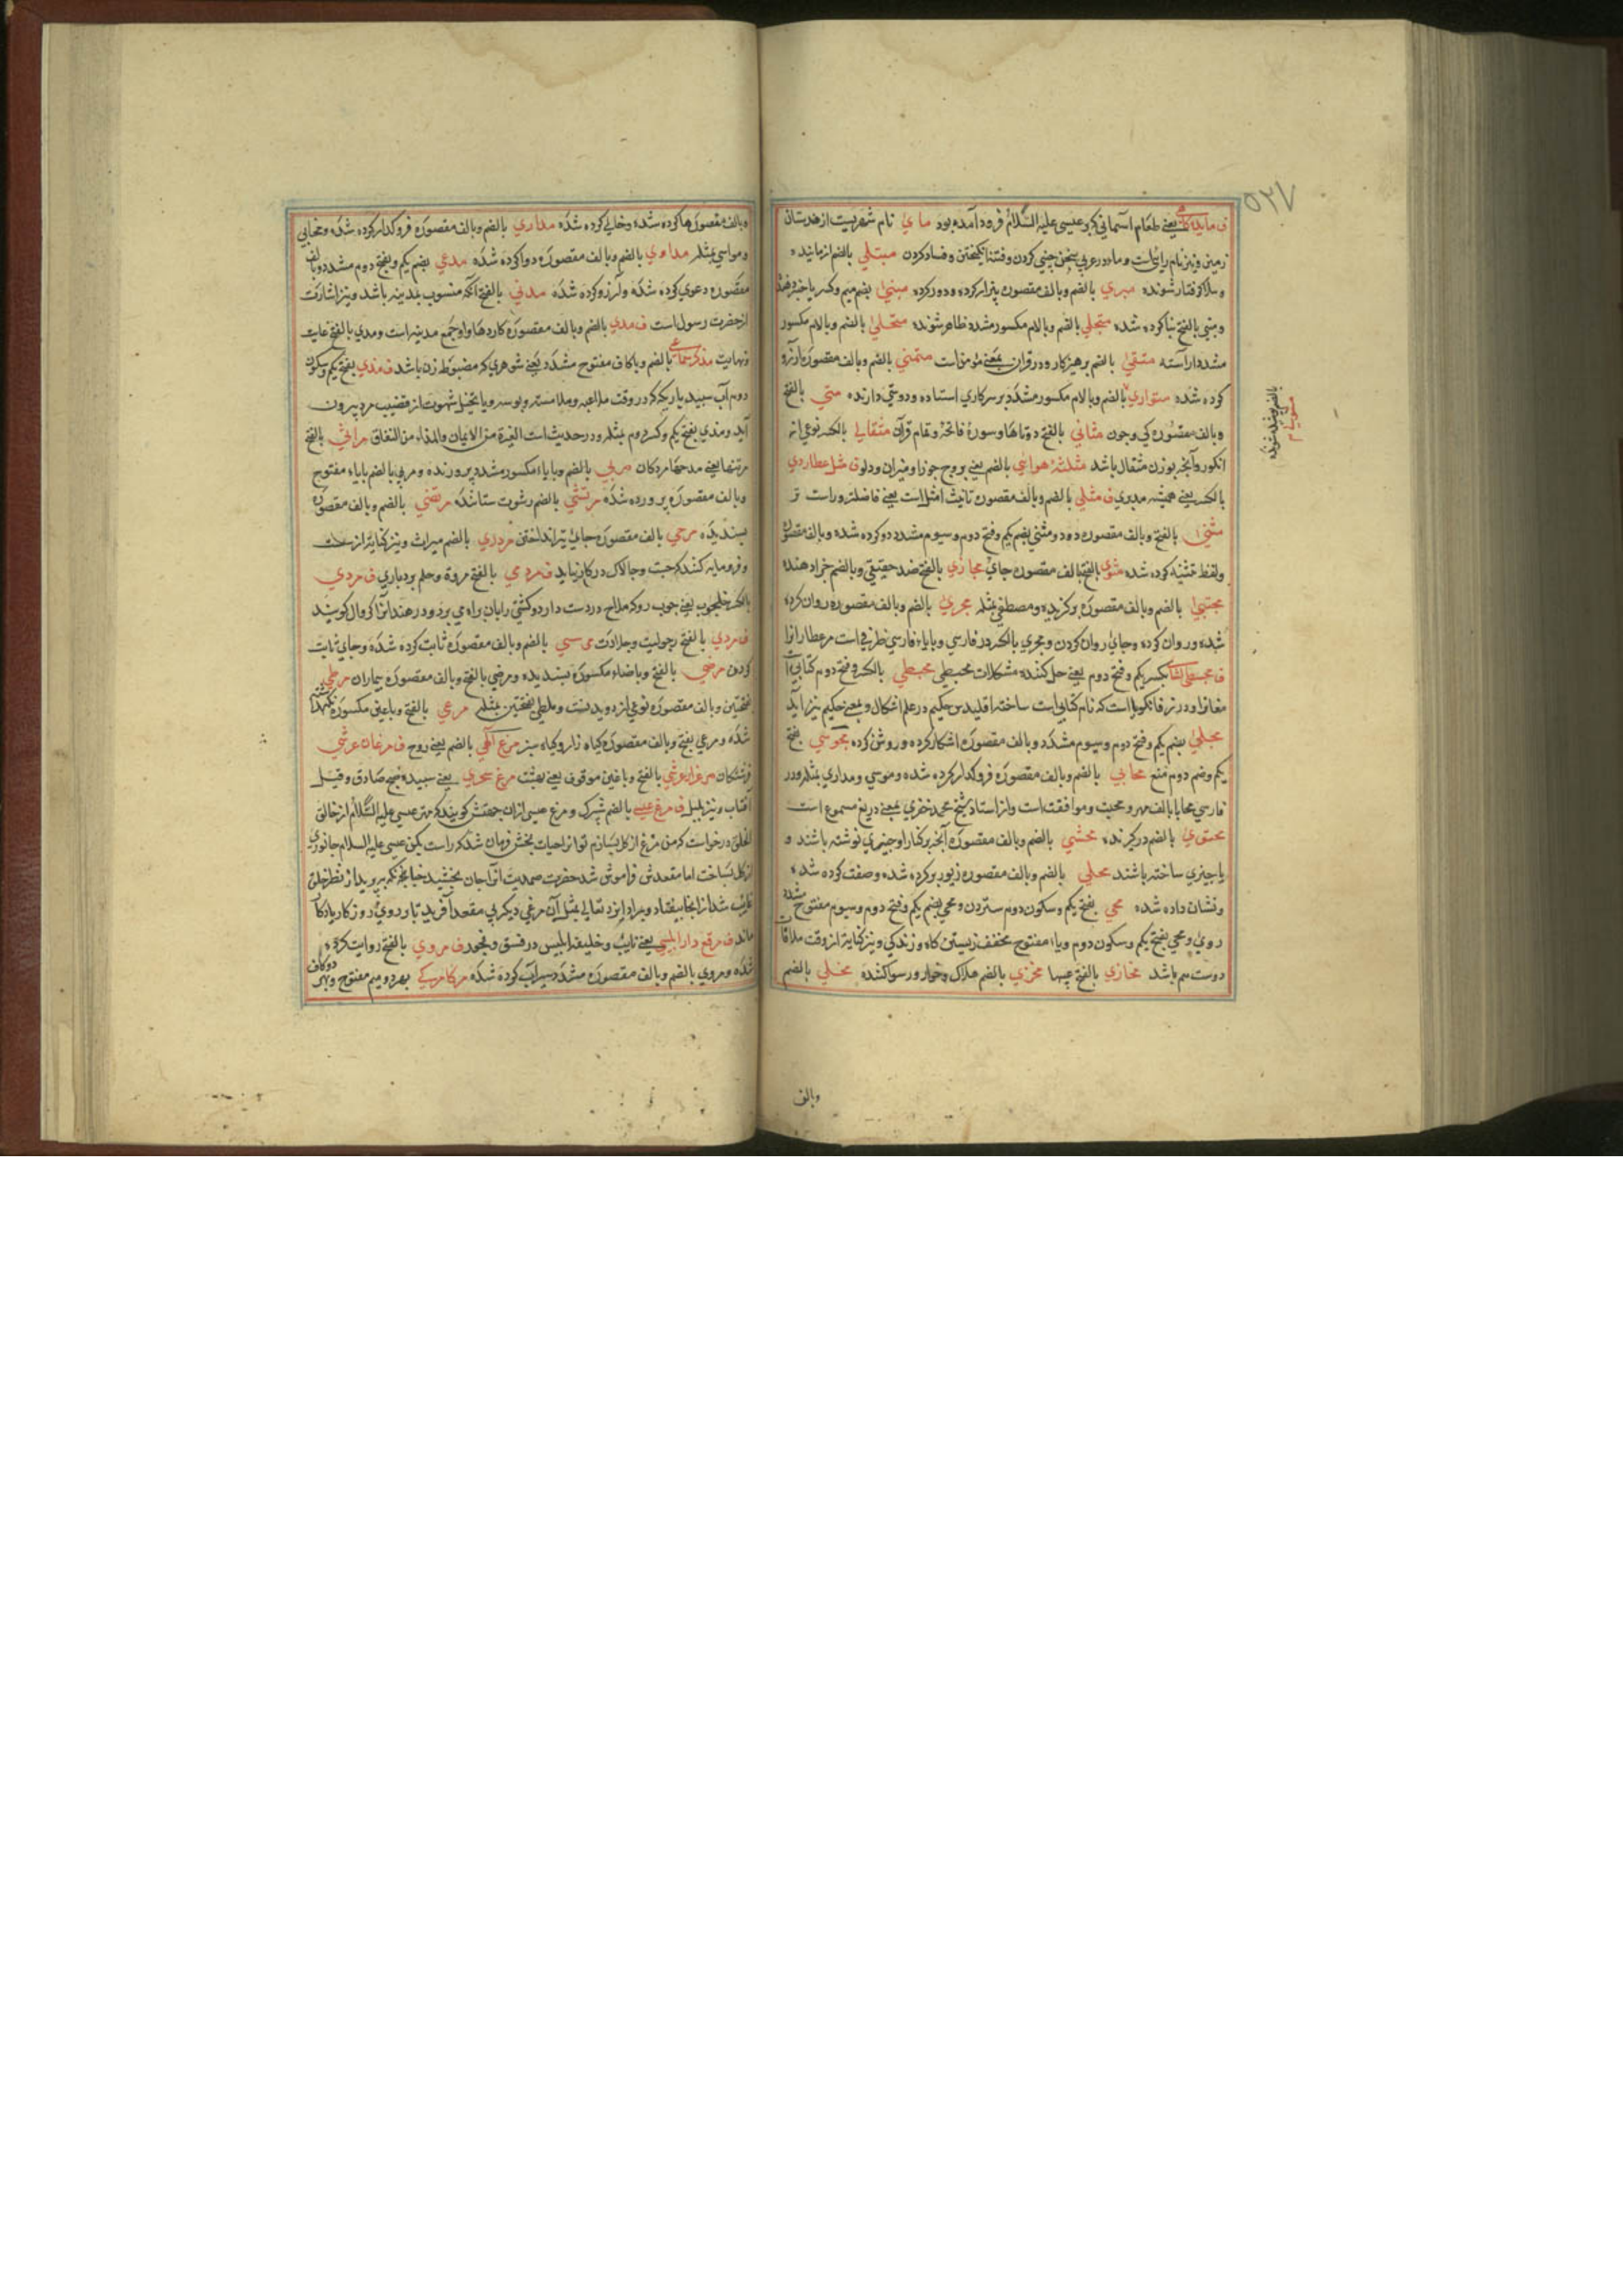 ٥٣٧
یعنی طعام آسمانی که بر عیسی علیه السلام فرود آمده بود مای نام شهریست از هندستان
زمین و نیز نام رائی است و ماء در عربی سخن چینی کردن و فتنه انگیختن و فساد کردن مبتلی بالضم ازمانیده
و ببلا گرفتار شونده مبری بالضم وبالف مقصوره بیزار کرده و دور کرده مبنی بضم میم وکسر با خبر دهنده
و مبنی بالفتح بنا کرده شده متجلی بالضم وبالام مکسور مشدد ظاهر شونده متحلی بالضم وبالام مکسور
مشدد آراسته متقی بالضم پرهیزکار ودر قران بمعنی مؤمن است متمنی بالضم وبالف مقصوره آرزو
کرده شده متواری بالضم وبالام مکسور مشدد بر سرکاری استاده ودوستی دارنده متی بالفتح
وبالف مقصوره کی وچون مثانی بالفتح دوتاها وسورهٔ فاتحه وتمام قرآن مثقالی بالکسر نوعی از
انگور وآنچه بوزن مثقال باشد مثلثهٔ هوائی بالضم یعنی بروج جوزا ومیزان ودلو ف مثل عطاردی
بالکسر یعنی همیشه مدبری ف مثلی بالضم وبالف مقصوره تانیث امثل است یعنی فاضلتر وراست تر
مثنی بالفتح وبالف مقصوره دودو ومثنی بضم یکم وفتح دوم وسیوم مشدد دو کرده شده وبالف مقصوره
ولفظ تثنیه کرده شده مثوی بالفتح بالف مقصوره جای مجازی بالفتح ضد حقیقی وبالضم جزا دهنده
مجتبی بالضم وبالف مقصوره برگزیده ومصطفی مثله مجری بالضم وبالف مقصوره روان کرده
شده وروان کرده وجای روان کردن ومجری بالکسر در فارسی وبایاء فارسی ظرفی است مر عطارانرا
بکسر یکم وفتح دوم یعنی حل کننده مشکلات مجسطی مجسطی بالکسر وفتح دوم کتابی
که نام کتابی است ساخته اقلیدس حکیم در علم اشکال وبمعنی حکیم نیز آید
مجلی بضم یکم وفتح دوم وسیوم مشدد وبالف مقصوره اشکار کرده وروشن کرده مجوسی بفتح
یکم وضم دوم مغ محابی بالضم وبالف مقصوره فروگذار کرده شده وموسی ومداری مثله ودر
فارسی محابا بالف مهر ومحبت وموافقت است واز استاد شیخ محمد خضری بمعنی دریغ مسموع است
محتوی بالضم درگیرنده محشی بالضم وبالف مقصوره آنچه بر کنار او چیزی نوشته باشند و
یا چیزی ساخته باشند محلی بالضم وبالف مقصوره زیور بر کرده شده وصفت کرده شده
ونشان داده شده محی بفتح یکم وسکون دوم ستردن ومحی بضم یکم وفتح دوم وسیوم مفتوح مشدد
روی ومحی بفتح یکم وسکون دوم ویاء مفتوح مخفف زیستن گاه وزندگی ونیز کنایه از وقت ملاقات
دوست هم باشد مخازی بالفتح عیبها مخزی بالضم هلاک وخوار ورسوا کننده مخلی بالضم
وبالف
وبالف مقصوره رها کرده شده وخالی کرده شده مداری بالضم وبالف مقصوره فروگذار کرده شده ومحابی
ومواسی مثله مداوی بالضم وبالف مقصوره دوا کرده شده مدعی بضم یکم وبفتح دوم مشدد وبالف
مقصوره دعوی کرده شده وآرزو کرده شده مدنی بالفتح آنکه منسوب بمدینه باشد ونیز اشارت
از حضرت رسول است ف مدی بالضم وبالف مقصوره کاردها واو جمع مدیه است ومدی بالفتح غایت
ونهایت بالضم وباکاف مفتوح مشدد یعنی شوهری که مضبوط زن باشد ف مذی بفتح یکم وسکون
دوم آب سپید باریک که در وقت ملاعبه وملامسه وبوسه ویا تخیل شهوت از قضیب مرد بیرون
آید ومذی بفتح یکم وکسر دوم مثله ودر حدیث است الغیرة من الایمان والمذاء من النفاق مراثی بالفتح
مرثیها یعنی مدحها مردگان مربی بالضم وبایاء مکسور مشدد پرورنده ومربی بالضم بایاء مفتوح
وبالف مقصوره پرورده شده مرتشی بالضم رشوت ستاننده مرتضی بالضم وبالف مقصوره
پسندیده مرمی بالف مقصوره جای تیر انداختن مرداری بالضم میراث ونیز کنایه از
وفرومایه کنند که چست وچالاک در کار نیاید ف مردمی بالفتح مروة وحلم وبردباری ف مردی
بالکسر یعنی چوب روکه ملاح در دست دارد وکشتی را بان راه می برد ودر هند آنرا کروال گویند
ف مردی بالفتح رجولیت وجلادت مرسی بالضم وبالف مقصوره ثابت کرده شده وجای ثابت
کردن مرضی بالفتح وباضاء مکسوره پسندیده ومرضی بالفتح وبالف مقصوره بیماران مرطی
بفتحتین وبالف مقصوره نوعی از دویدنست وملطی بفتحتین مثله مرعی بالفتح وباعین مکسوره نگهداشته
شده ومرعی بفتح وبالف مقصوره گیاه زار وگیاه سبز مرغ الٰهی بالضم یعنی روح ف مرغان عرشی
فرشتگان بالفتح وباغین موقوف یعنی بهشت مرغ سحری یعنی سپیده صبح صادق وقیل
آفتاب ونیز بلبل ف مرغ عیسی بالضم شپرک ومرغ عیسی ازان جهتش گویند که مهتر عیسی علیه السلام از خالق
الخلق درخواست که من مرغ از گل بسازم تو آنرا حیات بخش فرمان شد که راست بکن عیسی علیه السلام جانوری
از گل بساخت اما مقعدش فراموش شد حضرت صمدیت آنرا جان بخشید چنانچه بپرید از نظر خلق
غایب شد از آنجا بیفتاد وبمراد ایزد تعالی بمثل آن مرغی دیگر بی مقعد آفرید تا بر روی روزگار یادگار
ماند ف مرقع دار ابلیسی یعنی نایب وخلیفه ابلیس در فسق وفجور ف مروی بالفتح روایت کرده
شده ومروی بالضم وبالف مقصوره مشدد سیراب کرده شده مرکامرکی بهر دو میم مفتوح وبهر دو کاف